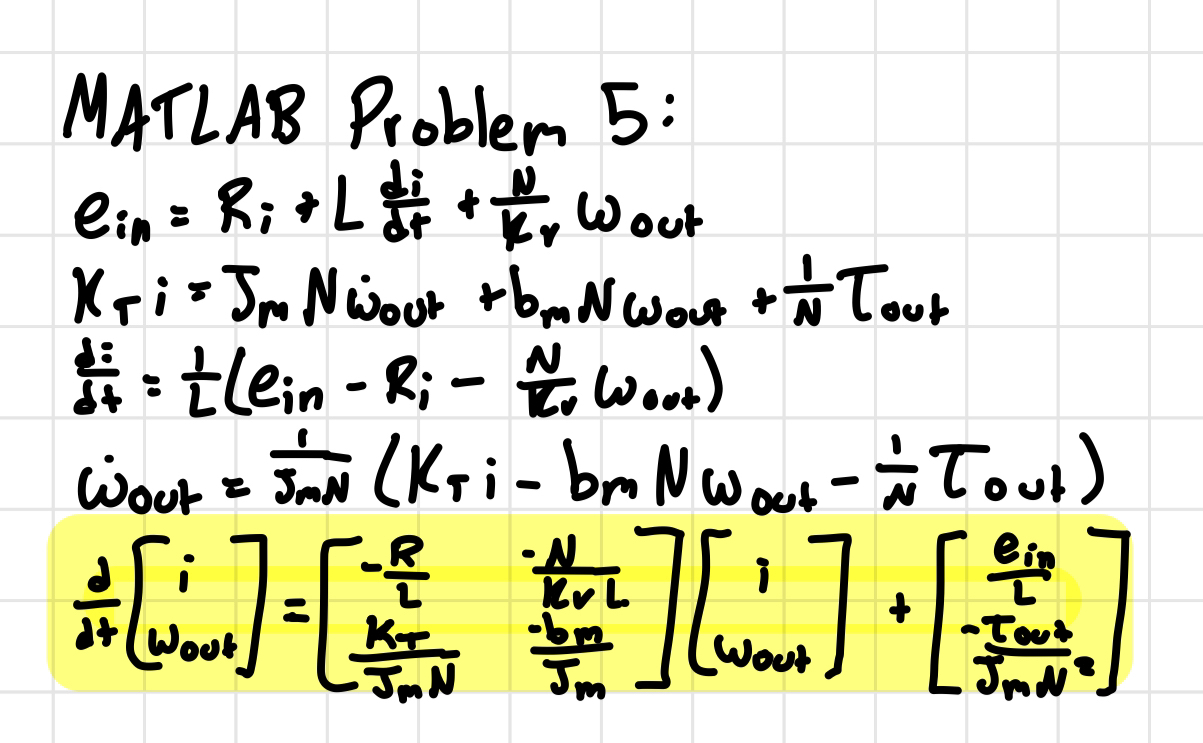 MATLAB Problem 5:
e_in = Ri + L di/dt + N/K_v ω_out
K_T i = J_m N ω̇_out + b_m N ω_out + 1/N τ_out
di/dt = 1/L (e_in - Ri - N/K_v ω_out)
ω̇_out = 1/(J_m N) (K_T i - b_m N ω_out - 1/N τ_out)
d/dt [i; ω_out] = [-R/L, -N/(K_v L); K_T/(J_m N), -b_m/J_m] [i; ω_out] + [e_in/L; -τ_out/(J_m N²)]